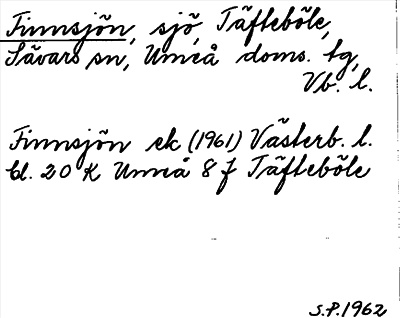 Finnsjön, sjö, Täfteböle,
Sävars sn, Umeå doms. tg,
Vb. l.
Finnsjön ek (1961) Västerb. l.
bl. 20 K Umeå 8 f Täfteböle
S.P. 1962